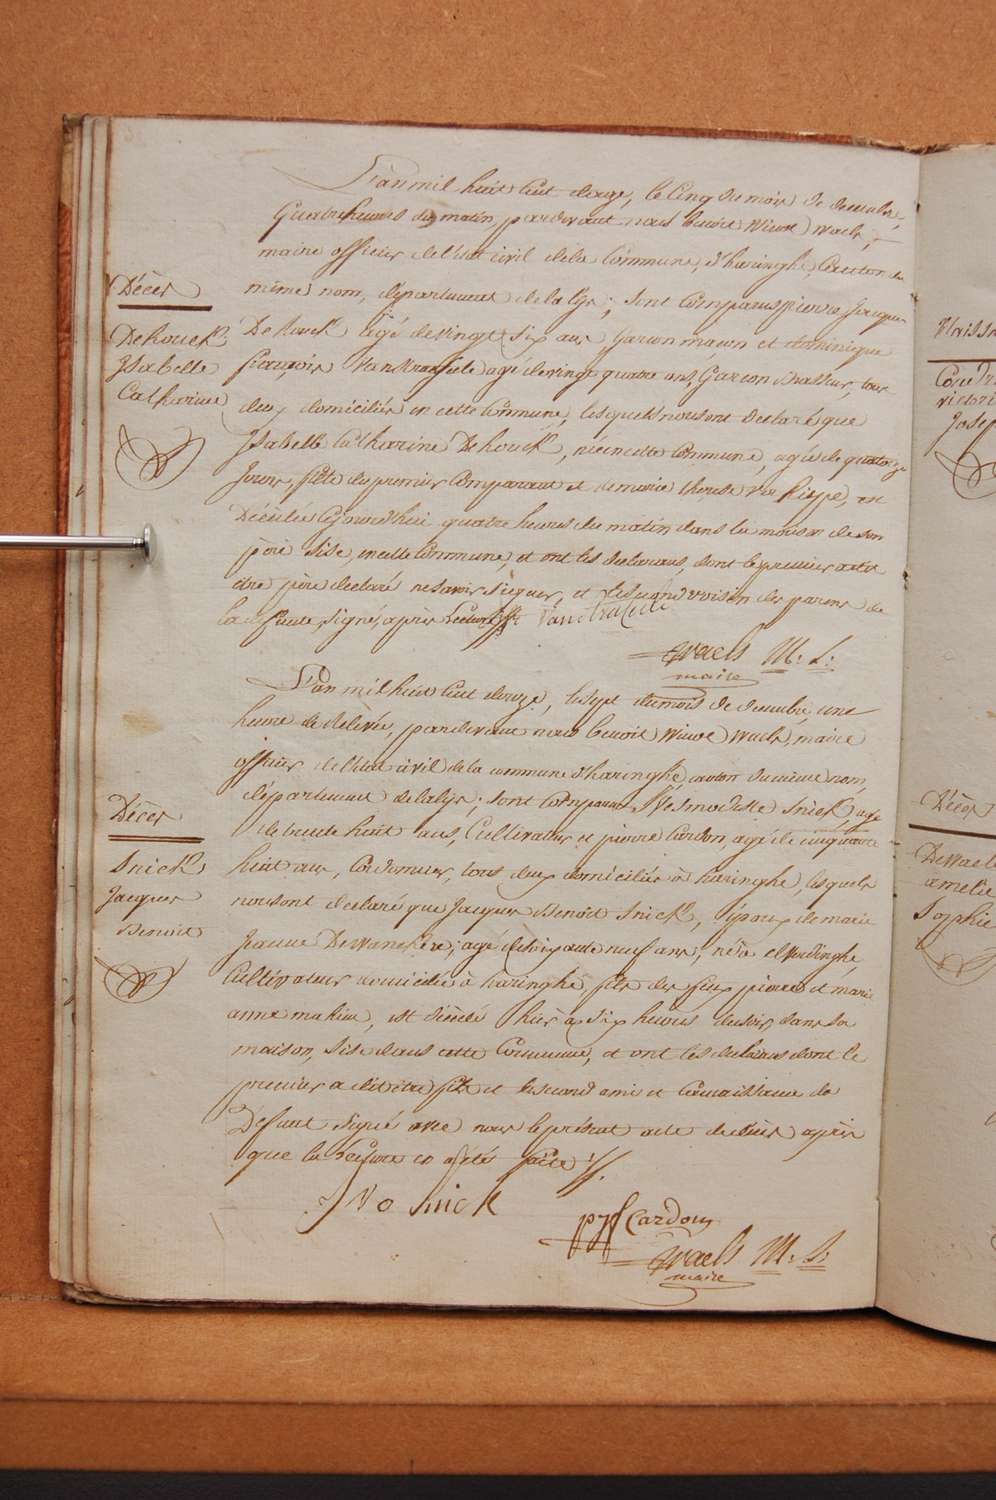 L'an mil huit cent douze, le Cinq du mois de decembre,
quatre heures du matin, pardevant nous benoit Winoc Waels,
maire officier de l'etat civil de la Commune d'haringhe, Canton du
même nom, département de la lys; sont Comparus pierre Jacques
Dehouck agé de vingt six ans garcon macon et dominique
francois Vanstraseele agé de vingt quatre ans, Garcon chasseur, tous
deux domiciliés en cette Commune, lesquels nous ont declaré que
Isabelle Catharine Dehouck, née en cette Commune, agée de quatorze
Jours, fille du premier Comparant et de marie therese, est
Décédée cejourd'hui quatre heures du matin dans la maison de son
père sise en cette Commune, et ont les declarans, dont le premier a dit
être père declaré ne savoir signer, et le second voisin des parens de
la defunte, signé, après Lecture faite
Waels M. L.
maire
Décès
Dehouck
Isabelle
Catharine
L'an mil huit cent douze, le sept du mois de decembre, une
heure de relevée, pardevant nous benoit Winoc Waels, maire
officier de l'etat civil de la commune d'haringhe canton du même nom,
département de la lys; sont Comparus Yves modeste Snick, agé
de trente huit ans, Cultivateur et pierre Cardon, agé de cinquante
huit ans, Cordonnier, tous deux domiciliés à haringhe, lesquels
nous ont declaré que Jacques Benoit Snick, époux de marie
Jeanne Dewanckere, agé de soixante neuf ans, né à elverdinghe
Cultivateur domicilié à haringhe, fils des feux pierre et marie
anne mahieu, est décédé hier à six heures du soir, dans sa
maison, sise dans cette Commune, et ont les declarans dont le
premier a dit être fils et le second ami et connaissance du
Defunt signé avec nous le présent acte de décès après
que la Lecture en a été faite
Yvo Snick
Cardon
Waels M. L.
maire
Décès
Snick
Jacques
Benoit
Décès
Dewael
amelie
Sophie
victori
Josep